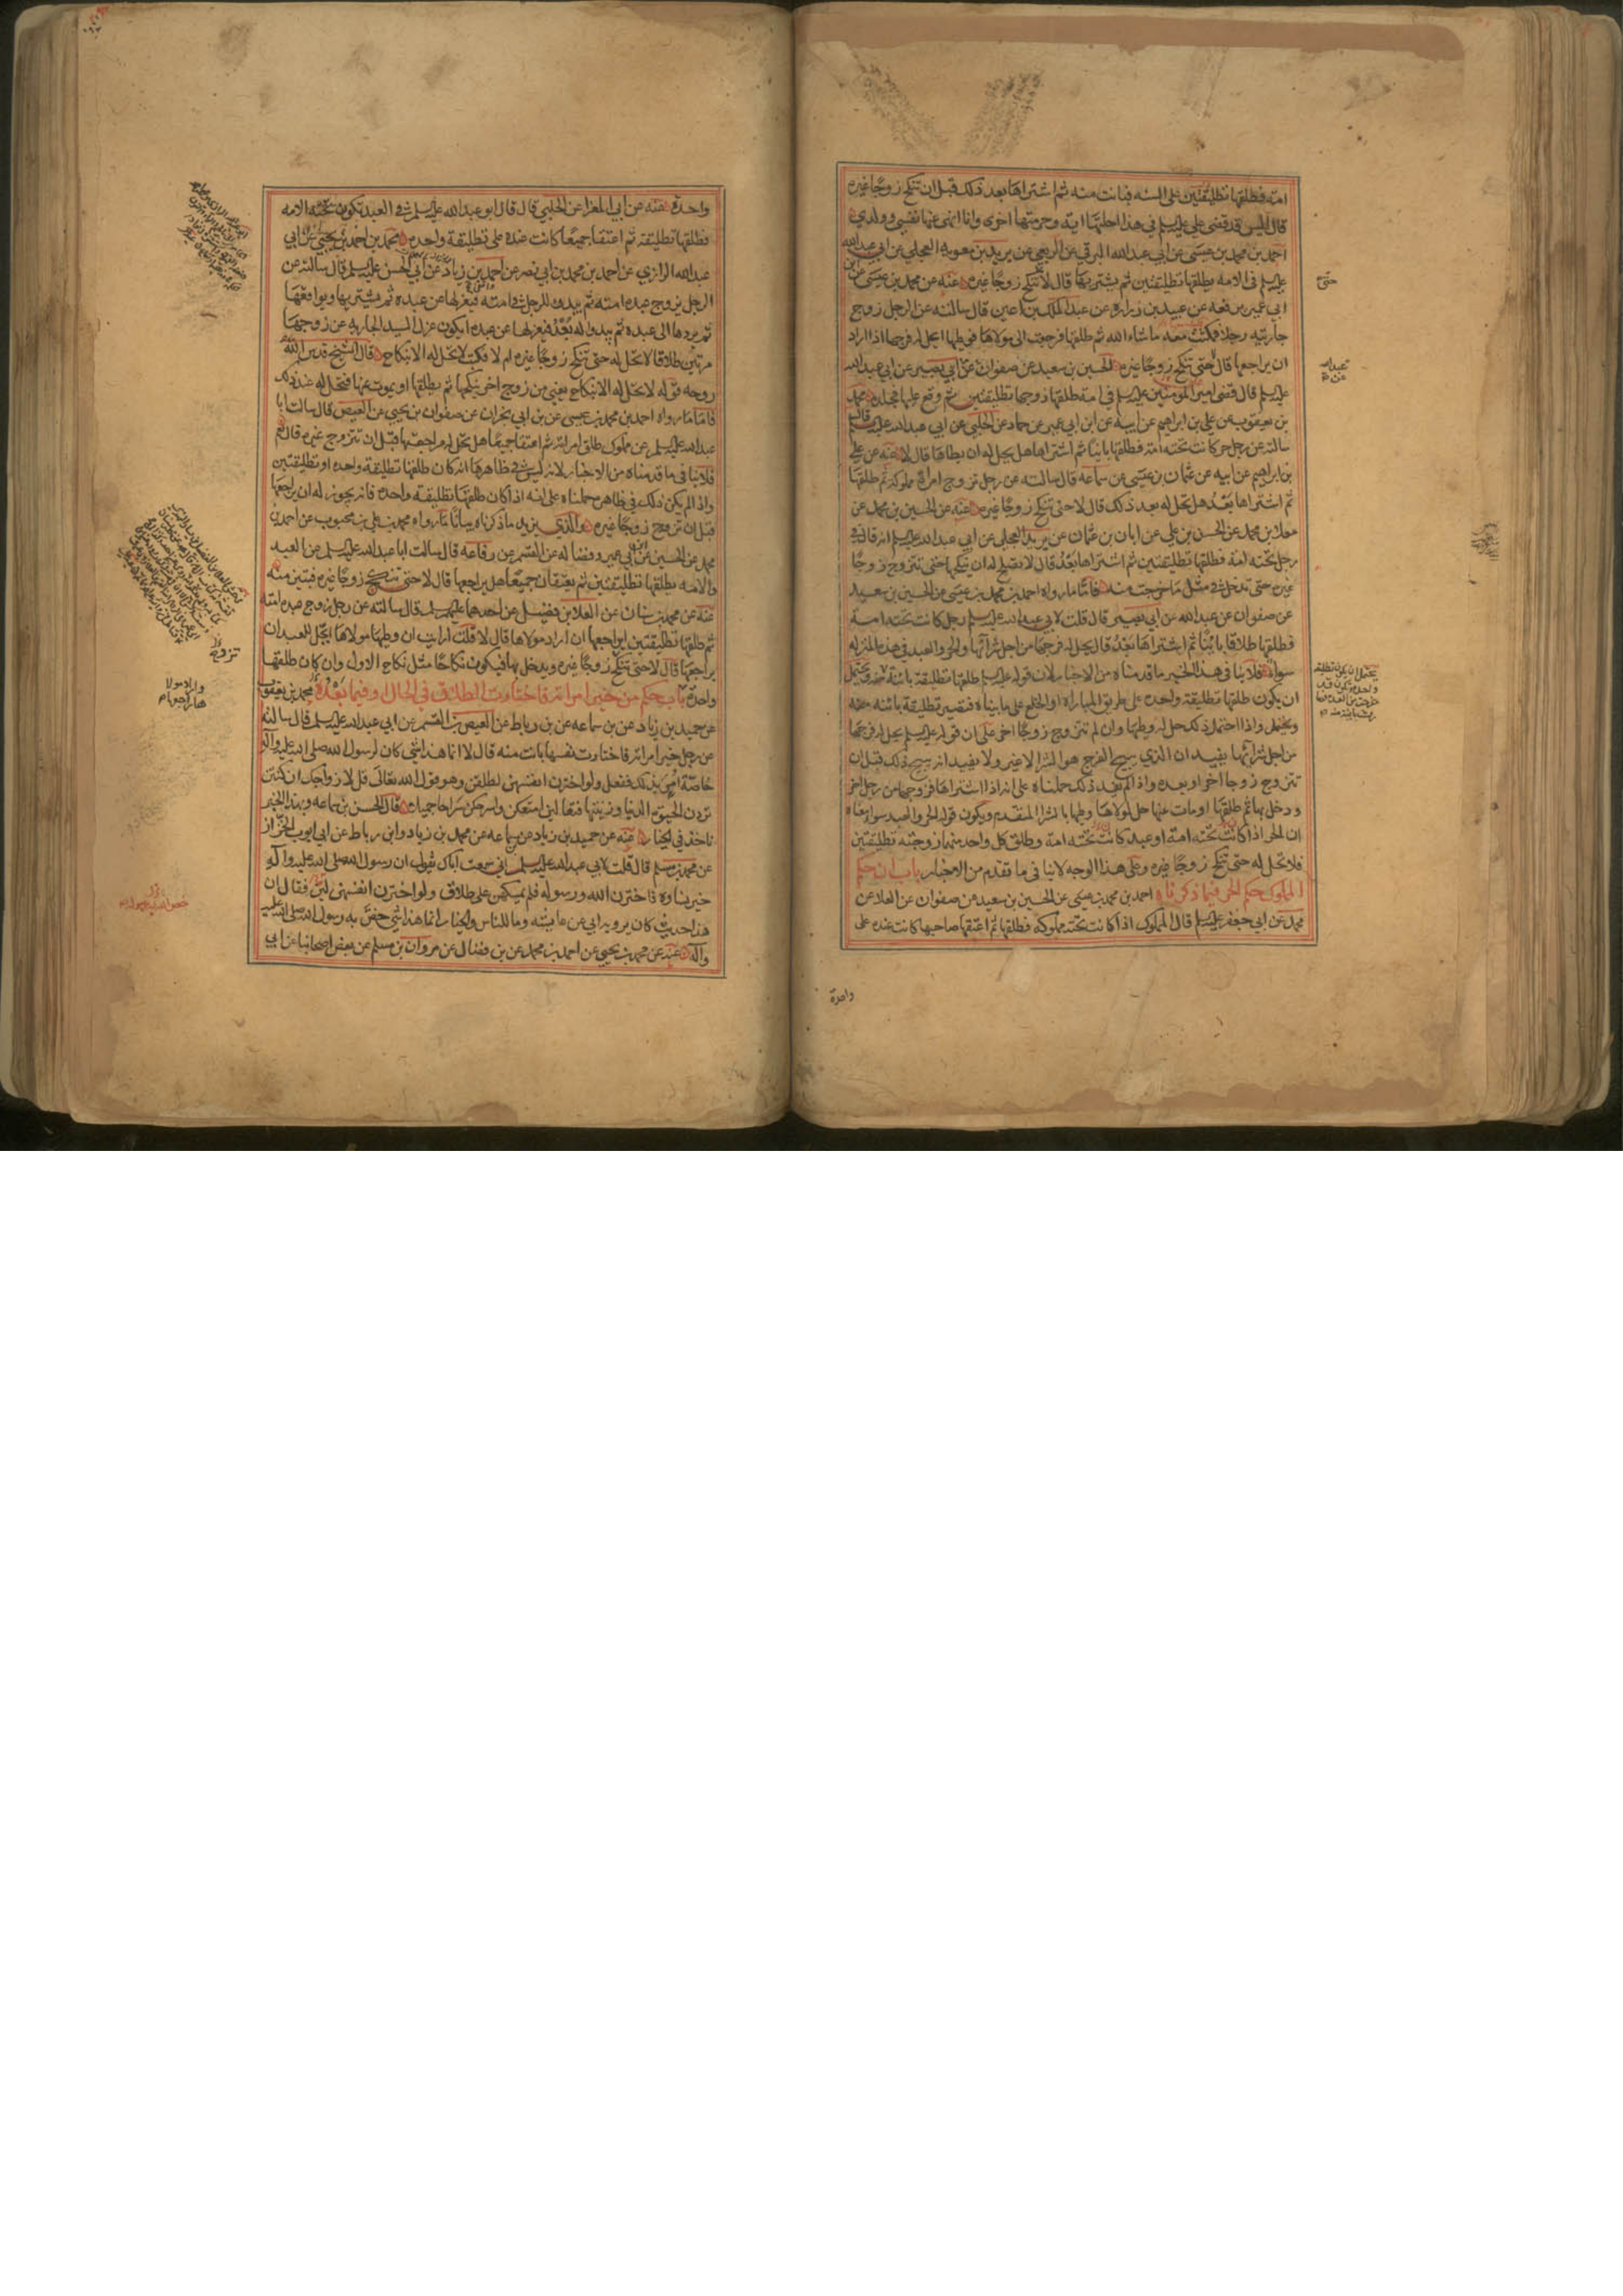 امته فطلقها تطليقتين على السنه فبانت منه ثم اشتراها بعد ذلك قبل ان تنكح زوجا غيره
قال اليس قد قضى علي عليه السلم في هذا احلتها اية وحرمتها اخرى وانا انهى عنها نفسي وولدي
احمد بن محمد بن عيسى عن ابي عبد الله البرقي عن عن بريد بن معويه العجلي عن ابي عبد الله
عليه السلم في الامه يطلقها تطليقتين ثم يشتريها قال لا حتى تنكح زوجا غيره عنه عن محمد بن عيسى عن ابن
ابي عمير عن عبيد بن زراره عن عبد الملك بن اعين قال سالته عن الرجل زوج
جاريته رجلا فمكثت معه ما شاء الله ثم طلقها فرجعت الى مولاها فوطيها ايحل له فرجها اذا اراد
ان يراجعها قال لا حتى تنكح زوجا غيره الحسين بن سعيد عن صفوان عن ابي بصير عن ابي عبد الله
عليه السلم قال قضى امير المومنين عليه السلم في امة طلقها زوجها تطليقتين ثم وقع عليها فجلده محمد
بن يعقوب عن علي بن ابراهيم عن ابيه عن ابن ابي عمير عن حماد عن الحلبي عن ابي عبد الله عليه السلم قال
سالته عن رجل حر كانت تحته امة فطلقها باينا ثم اشتراها هل يحل له ان يطاها قال لا عنه عن علي
بن ابراهيم عن ابيه عن عثمان بن عيسى عن سماعه قال سالته عن رجل تزوج امراة مملوكة ثم طلقها
ثم اشتراها بعد هل تحل له بعد ذلك قال لا حتى تنكح زوجا غيره عنه عن الحسين بن محمد عن
معلا بن محمد عن الحسن بن علي عن ابان بن عثمان عن بريد العجلي عن ابي عبد الله عليه السلم انه قال في
رجل تحته امة فطلقها تطليقتين ثم اشتراها بعد قال لا يصلح له ان ينكحها حتى تتزوج زوجا
غيره حتى تدخل في مثل ما خرجت منه فاما ما رواه احمد بن محمد بن عيسى عن الحسين بن سعيد
عن صفوان عن عبد الله عن ابي بصير قال قلت لابي عبد الله عليه السلم رجل كانت تحته امة
فطلقها طلاقا باينا ثم اشتراها بعد قال يحل له فرجها من اجل شرائها والحر والعبد في هذه المنزله
سواء فلا ينافي هذا الخبر ما قدمناه من الاخبار لان قوله عليه السلم طلقها تطليقة باينة يحتمل
ان يكون طلقها تطليقة واحدة على طريق المباراة او الخلع على ما بيناه فتصير تطليقة باينه
ويحتمل واذا احتمل ذلك حل له وطيها وان لم تتزوج زوجا اخر على ان قوله عليه السلم يحل له فرجها
من اجل شرائها يفيد ان الذي يبيح الفرج هو الشرا لا غير ولا يفيد انه يبيح ذلك قبل ان
تتزوج زوجا اخر او بعده واذا لم يفيد ذلك حملناه على انه اذا اشتراها فزوجها من رجل اخر
ودخل بها ثم طلقها او مات عنها حل لمولاها وطيها بالشرا المتقدم ويكون قوله الحر والعبد سوا معناه
ان الحر اذا كانت تحته امة او عبد كانت تحته امة وطلق كل واحد منهما زوجته تطليقتين
فلا تحل له حتى تنكح زوجا غيره وعلى هذا الوجه لا ينافي ما تقدم من الاخبار باب ان حكم
المملوك حكم الحر فيما ذكرناه احمد بن محمد بن عيسى عن الحسين بن سعيد عن صفوان عن العلا عن
محمد عن ابي جعفر عليه السلم قال المملوك اذا كانت تحته مملوكه فطلقها ثم اعتقها صاحبها كانت عنده على
واحدة
يحتمل ان يكون تطليقة
واحدة وتكون قد
خرجت من العدة
واحدة عنه عن ابي المغرا عن الحلبي قال قال ابو عبد الله عليه السلم في العبد تكون تحته الامه
فطلقها تطليقة ثم اعتقا جميعا كانت عنده على تطليقة واحده محمد بن احمد بن يحيى عن ابي
عبد الله الرازي عن احمد بن محمد بن ابي نصر عن احمد بن زياد عن ابي الحسن عليه السلم قال سالته عن
الرجل يزوج عبده امته ثم يبدو للرجل في امته فيعزلها عن عبده ثم يستبريها ويواقعها
ثم يردها الى عبده ثم يبدو له بعد فيعزلها عن عبده ايكون عزل السيد الجاريه عن زوجها
مرتين طلاقا لا تحل له حتى تنكح زوجا غيره ام لا فكتب لا تحل له الا بنكاح قال الشيخ قدس الله
روحه قوله لا تحل له الا بنكاح يعني من زوج اخر ينكحها ثم يطلقها او يموت عنها فتحل له عند ذلك
فاما ما رواه احمد بن محمد بن عيسى عن بن ابي نجران عن صفوان بن يحيى عن العيص قال سالت ابا
عبد الله عليه السلم عن مملوك طلق امراته ثم اعتقا جميعا هل تحل له مراجعتها قبل ان تتزوج غيره قال نعم
فلا ينافي ما قدمناه من الاخبار لانه ليس في ظاهرها انه كان طلقها تطليقة واحده او تطليقتين
واذا لم يكن ذلك في ظاهره حملناه على انه اذا كان طلقها تطليقة واحده فانه يجوز له ان يراجعها
قبل ان تزوج زوجا غيره والذي يزيد ما ذكرناه بيانا ما رواه محمد بن علي بن محبوب عن احمد بن
محمد عن الحسين عن ابن ابي عمير وفضاله عن القسم عن رفاعه قال سالت ابا عبد الله عليه السلم عن العبد
والامه يطلقها تطليقتين ثم يعتقان جميعا هل يراجعها قال لا حتى تنكح زوجا غيره فتبين منه
عنه عن محمد بن سنان عن العلا بن فضيل عن احدهما عليهم السلم قال سالته عن رجل زوج عبده امته
ثم طلقها تطليقتين ايراجعها ان اراد مولاها قال لا قلت ارايت ان وطيها مولاها ايحل للعبد ان
يراجعها قال لا حتى تنكح زوجا غيره ويدخل بها فيكون نكاحا مثل نكاح الاول وان كان طلقها
واحدة باب حكم من خير امراته فاختارت الطلاق في الحال او فيما بعده محمد بن يعقوب
عن حميد بن زياد عن بن سماعه عن بن رباط عن العيص بن القسم عن ابي عبد الله عليه السلم قال سالته
عن رجل خير امراته فاختارت نفسها بانت منه قال لا انما هذا شي كان لرسول الله صلى الله عليه واله
خاصة امر بذلك ففعل ولو اخترن انفسهن لطلقن وهو قول الله تعالى قل لازواجك ان كنتن
تردن الحيوة الدنيا وزينتها فتعالين امتعكن واسرحكن سراحا جميلا قال الحسن بن سماعه وبهذا الخبر
ناخذ في الخيار عنه عن حميد بن زياد عن بن سماعه عن محمد بن زياد وابن رباط عن ابي ايوب الخزاز
عن محمد بن مسلم قال قلت لابي عبد الله عليه السلم اني سمعت اباك يقول ان رسول الله صلى الله عليه واله
خير نساءه فاخترن الله ورسوله فلم يمسكهن على طلاق ولو اخترن انفسهن لبن فقال ان
هذا حديث كان يرويه ابي عن عايشه وما للناس والخيار انما هذا شي خص به رسول الله صلى الله عليه
واله عنه عن محمد بن يحيى عن احمد بن محمد عن بن فضال عن مروان بن مسلم عن بعض اصحابنا عن ابي
تزوج